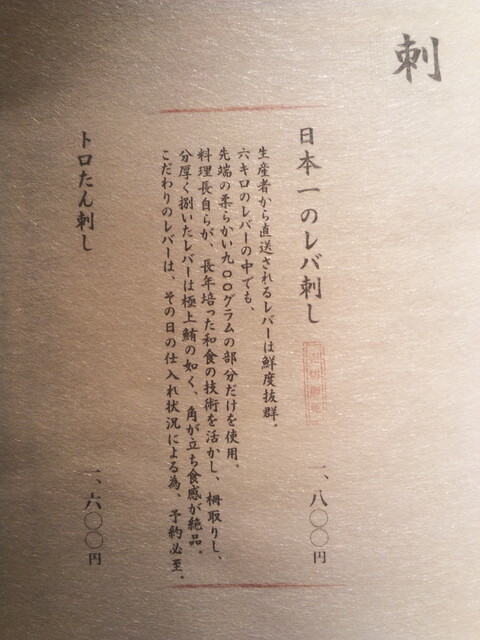 刺
日本一のレバ刺し
一、八〇〇円
生産者から直送されるレバーは鮮度抜群。
六キロのレバーの中でも、
先端の柔らかい九〇〇グラムの部分だけを使用。
料理長自らが、長年培った和食の技術を活かし、柵取りし、
分厚く捌いたレバーは極上鮪の如く、角が立ち食感が絶品。
こだわりのレバーは、その日の仕入れ状況による為、予約必至。
トロたん刺し
一、六〇〇円